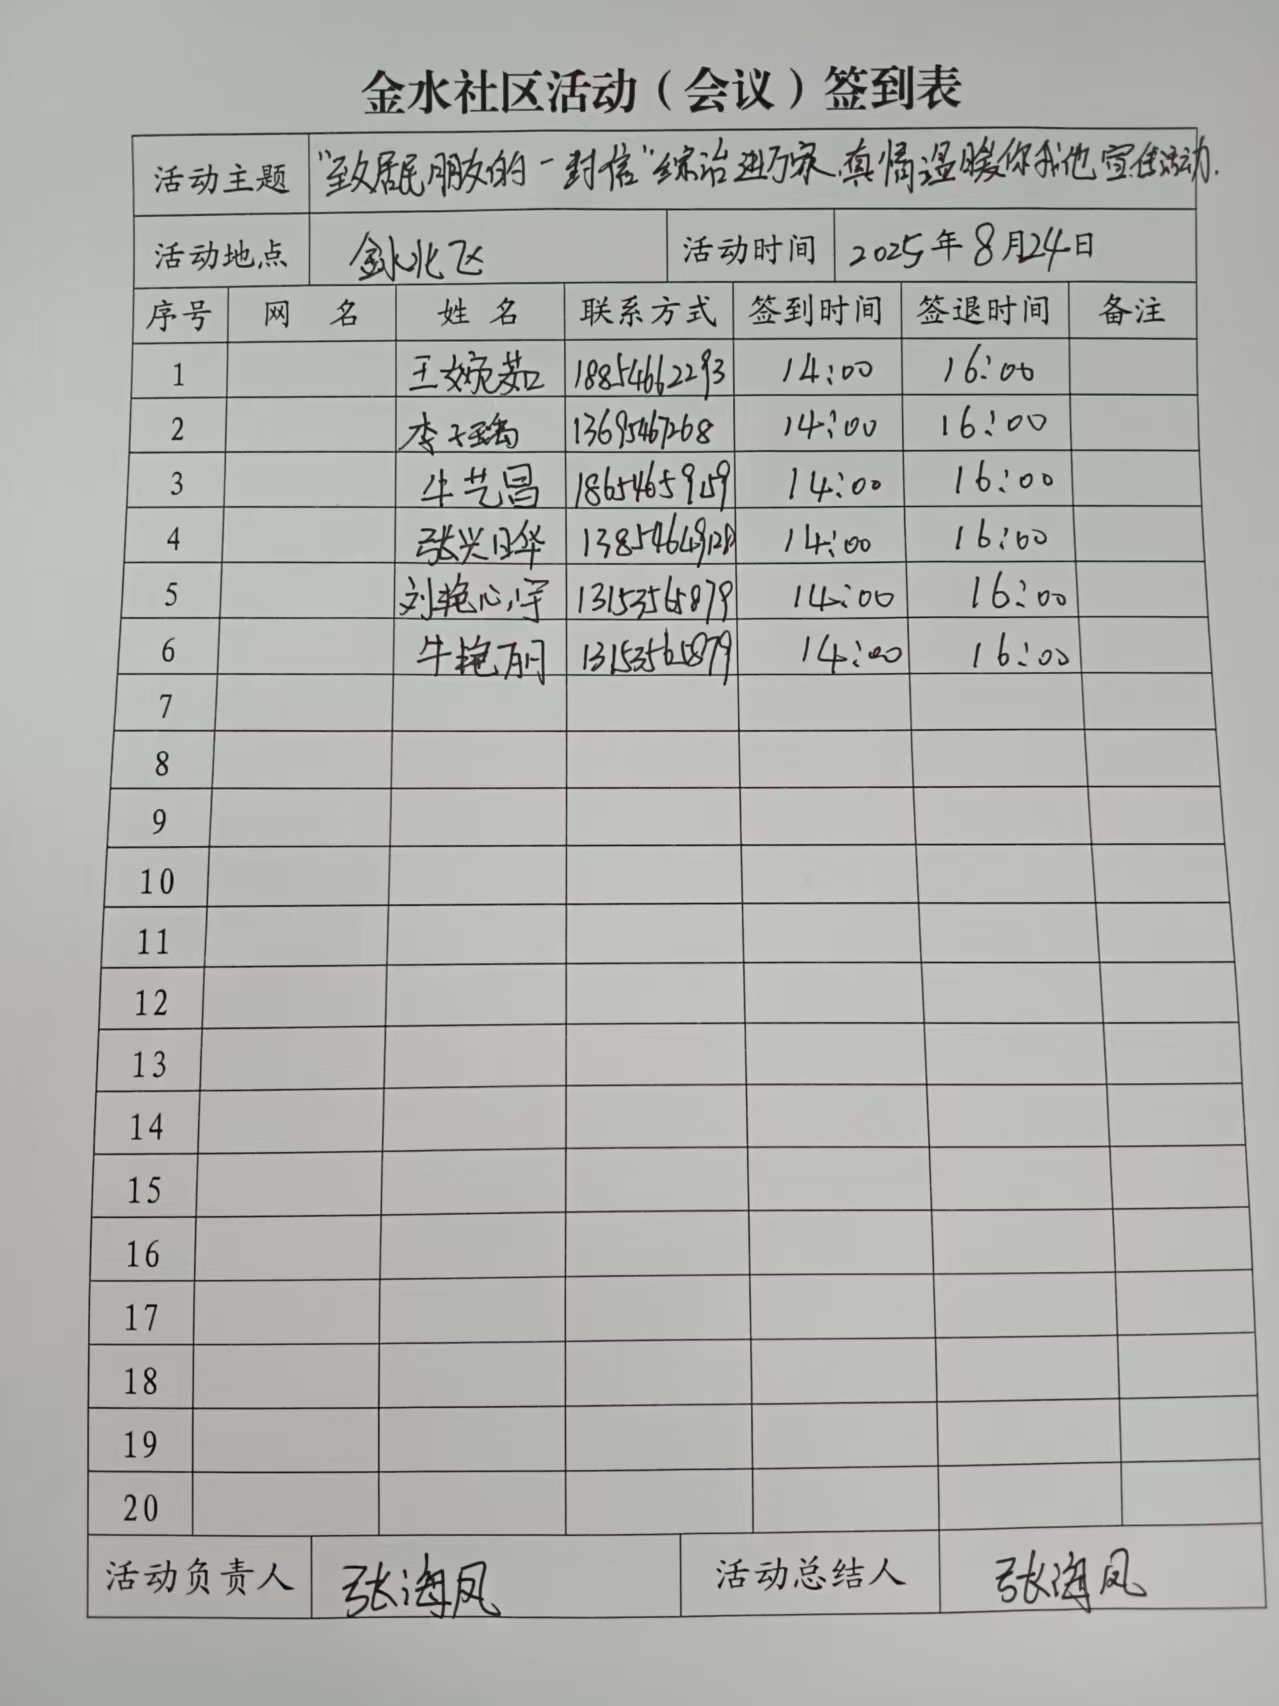 金水社区活动（会议）签到表
活动主题 "致居民朋友的一封信"综治进万家,真情温暖你我他宣传活动.
活动地点 金水北区 活动时间 2025年8月24日
序号 网 名 姓 名 联系方式 签到时间 签退时间 备注
1 王婉茹 18854662293 14:00 16:00
2 李 13695467268 14:00 16:00
3 牛艺昌 18654659159 14:00 16:00
4 张兴华 14:00 16:00
5 刘艳 13153565879 14:00 16:00
6 牛艳丽 13153565879 14:00 16:00
7
8
9
10
11
12
13
14
15
16
17
18
19
20
活动负责人 张海凤 活动总结人 张海凤